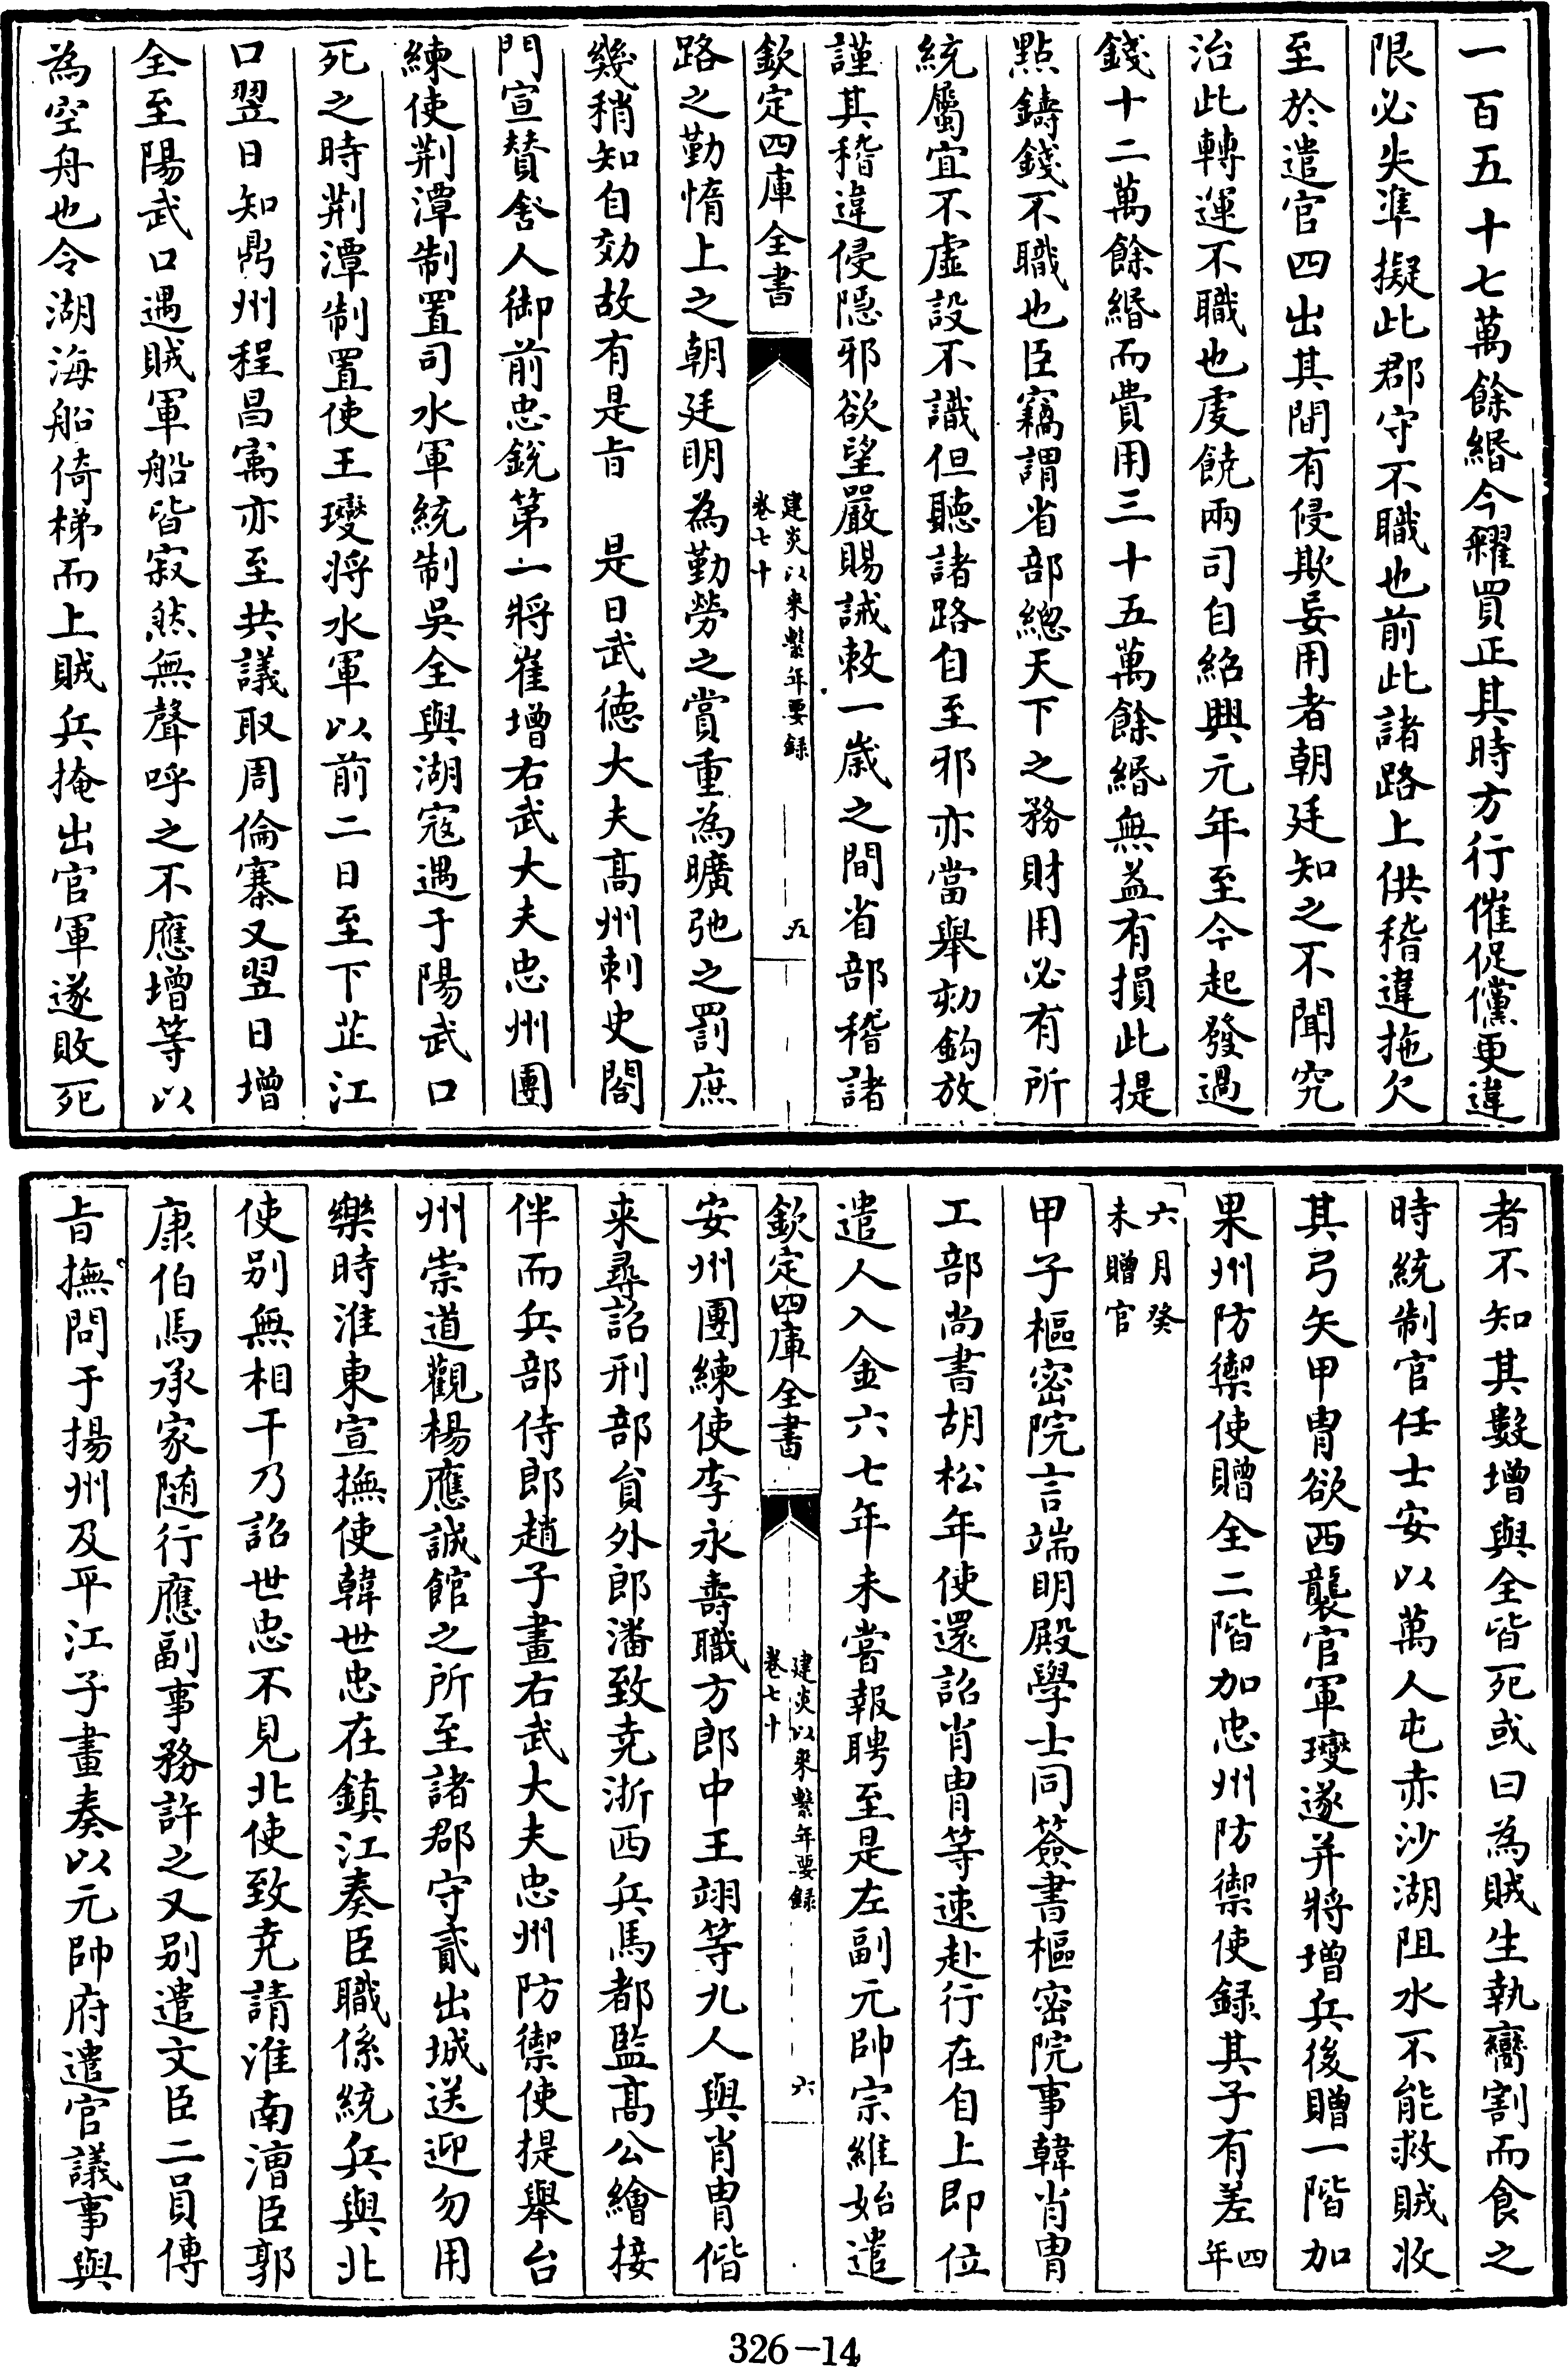 一百五十七萬餘緡今糴買正其時方行催促儻更違
限必失準擬此郡守不職也前此諸路上供稽違拖欠
至於遣官四出其間有侵欺妄用者朝廷知之不聞究
治此轉運不職也䖍饒兩司自紹興元年至今起發過
錢十二萬餘緡而費用三十五萬餘緡無益有損此提
點鑄錢不職也臣竊謂省部總天下之務財用必有所
統屬宜不虛設不識但聽諸路自至邪亦當舉劾鈎放
謹其稽違侵隱邪欲望嚴賜誡敕一歲之間省部稽諸
欽定四庫全書
建炎以来繫年要録
卷七十
五
路之勤惰上之朝廷明為勤勞之賞重為曠弛之罰庶
幾稍知自効故有是㫖　是日武德大夫髙州刺史閤
門宣賛舍人御前忠銳第一將崔增右武大夫忠州團
練使荆潭制置司水軍統制吳全與湖寇遇于陽武口
死之時荆潭制置使王𤫉將水軍以前二日至下芷江
口翌日知鼎州程昌㝢亦至共議取周倫寨又翌日增
全至陽武口遇賊軍船皆寂然無聲呼之不應增等以
為空舟也令湖海船倚梯而上賊兵掩出官軍遂敗死
者不知其數增與全皆死或曰為賊生執臠割而食之
時統制官任士安以萬人屯赤沙湖阻水不能救賊收
其弓矢甲胄欲西襲官軍𤫉遂并將增兵後贈一階加
果州防禦使贈全二階加忠州防禦使録其子有差四
年
六月癸
未贈官
甲子樞密院言端明殿學士同簽書樞密院事韓肖胄
工部尚書胡松年使還詔肖胄等速赴行在自上即位
遣人入金六七年未嘗報聘至是左副元帥宗維始遣
欽定四庫全書
建炎以来繫年要録
卷七十
六
安州團練使李永壽職方郎中王翊等九人與肖胄偕
来尋詔刑部員外郎潘致堯浙西兵馬都監髙公繪接
伴而兵部侍郎趙子畫右武大夫忠州防禦使提舉台
州崇道觀楊應誠館之所至諸郡守貳出城送迎勿用
樂時淮東宣撫使韓世忠在鎮江奏臣職係統兵與北
使别無相干乃詔世忠不見北使致堯請淮南漕臣郭
康伯馬承家随行應副事務許之又别遣文臣二員傳
㫖撫問于揚州及平江子畫奏以元帥府遣官議事與
326-14